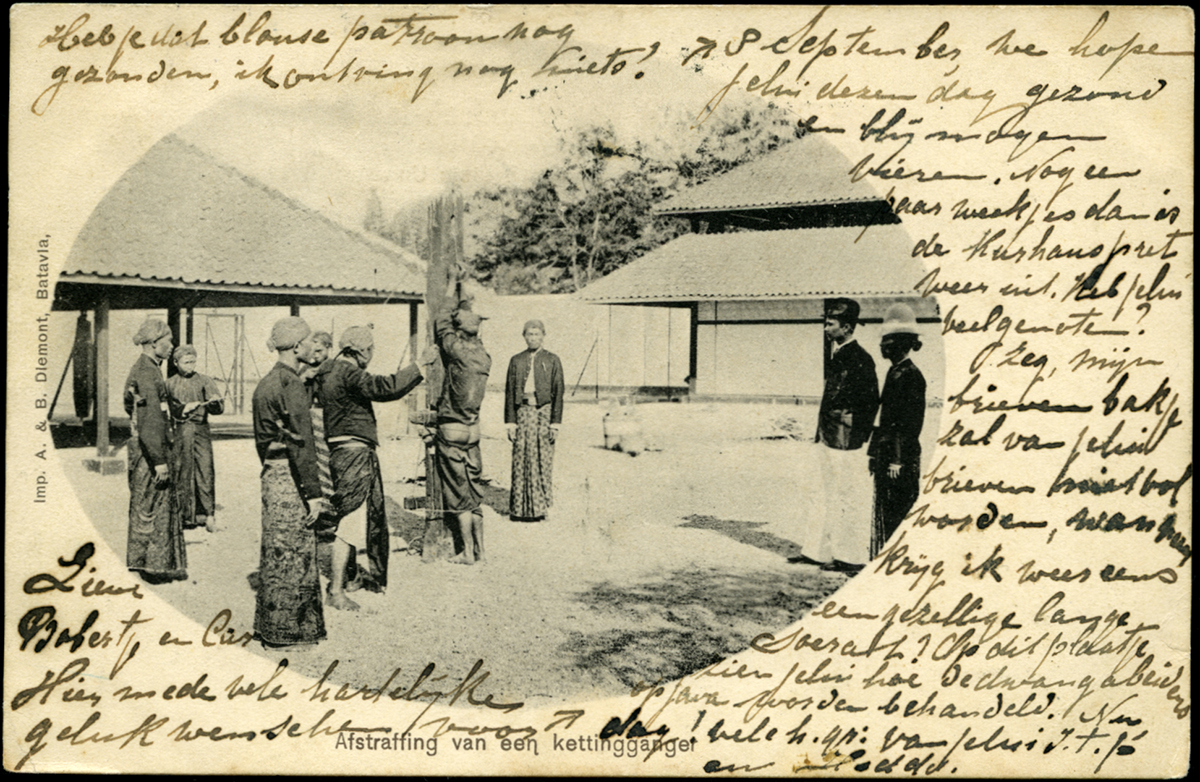 Heb je dat blouse patroon nog
gezonden, ik ontving nog niets!
Imp. A. & B. Diemont, Batavia,
Lieve
Robertje en Cas
Hier mede vele hartelijke
geluk wenschen voor
Afstraffing van een kettingganger
8 September, we hopen
jelui dezen dag gezond
en blij mogen
vieren. Nog een
paar weekjes dan is
de Kurhauspret
weer uit. Heb jelui
veel genoten?
O zeg, mijn
brieven bakje
zal van jelui
brieven niet vol
worden, wanneer
krijg ik weer eens
een gezellige lange
Soerat? Op dit plaatje
zien jelui hoe de dwangabeiders
op Java worden behandeld. Nu
dag! vele h. gr. van jelui
en